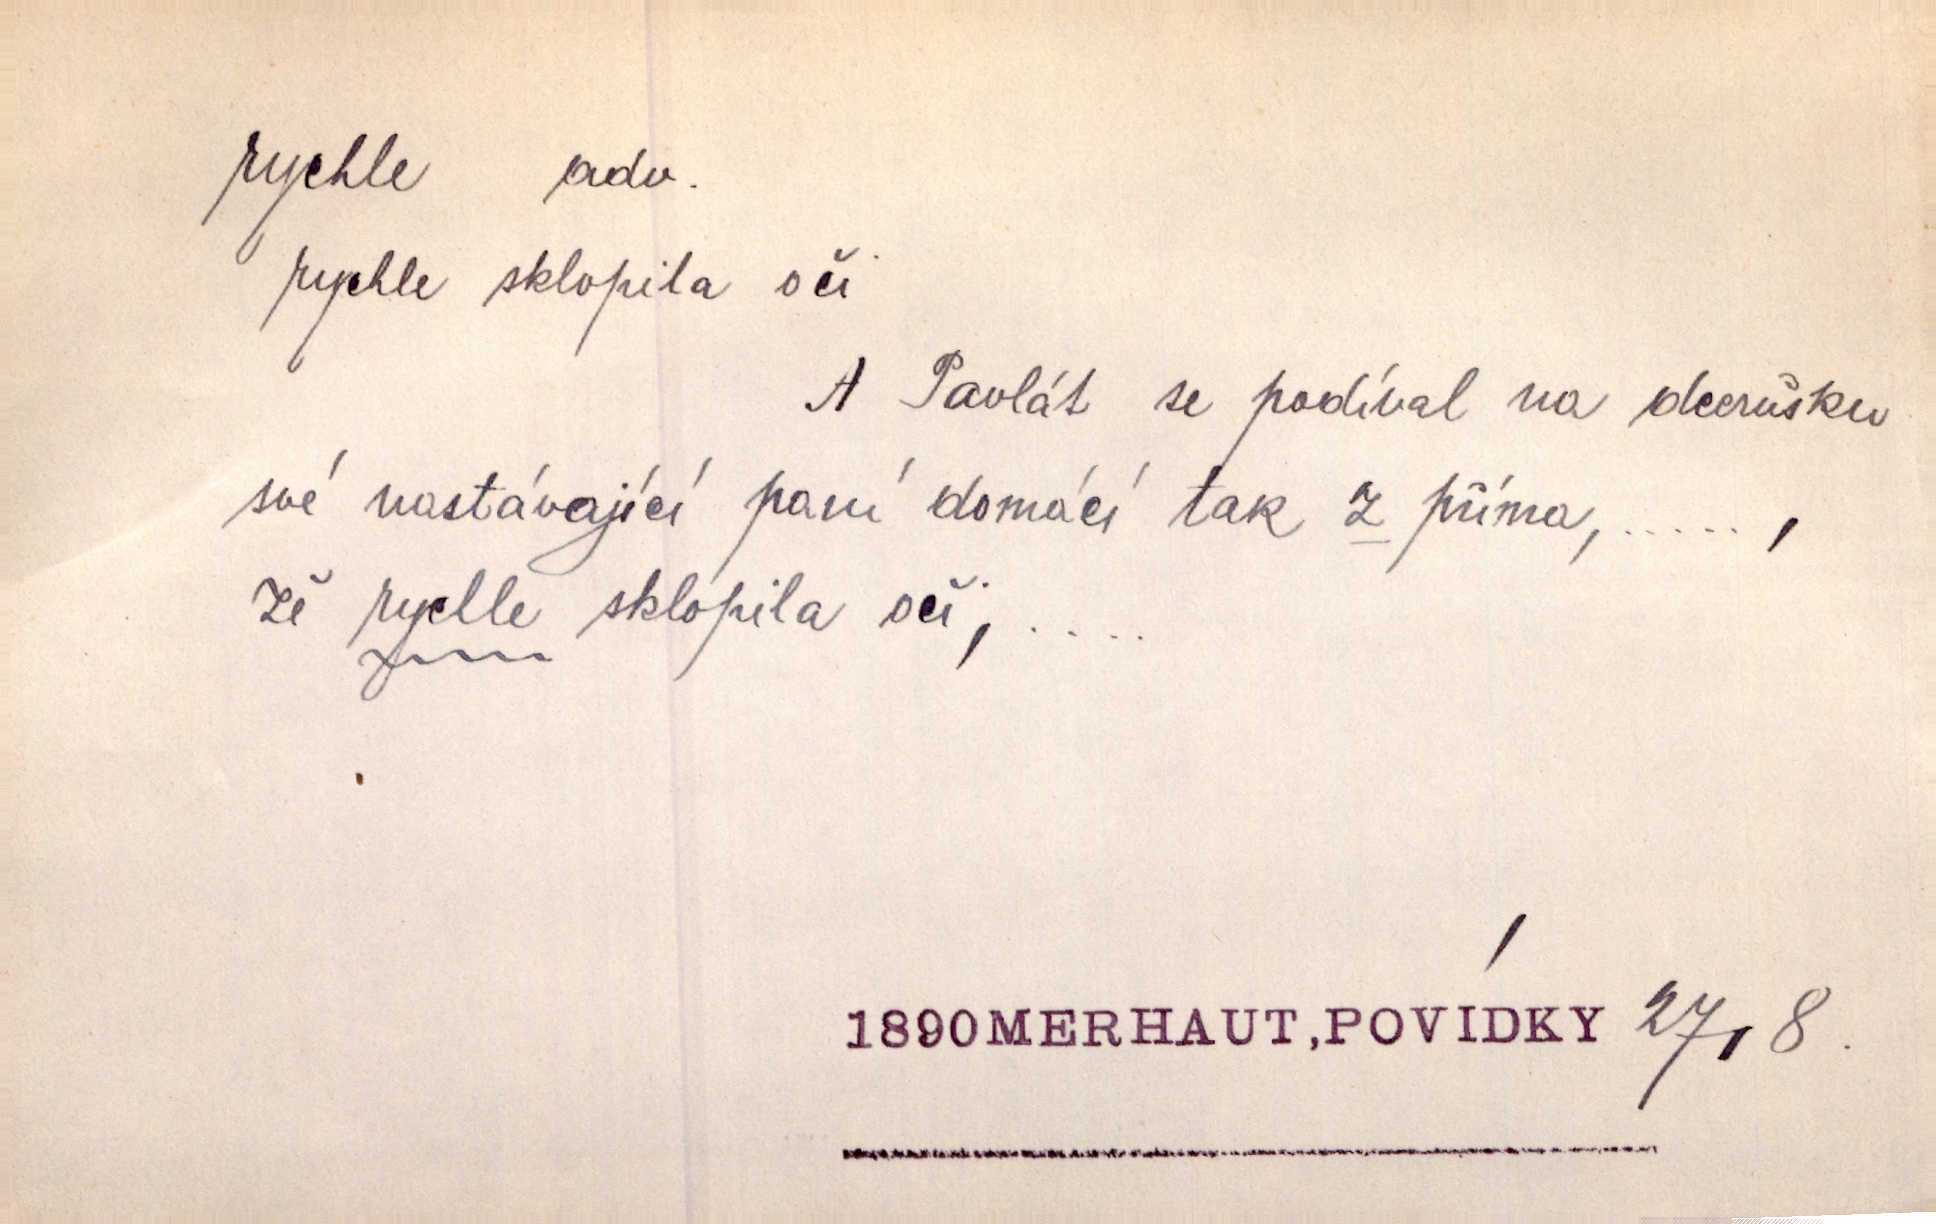 rychle adv.
rychle sklopila oči
A Pavlát se podíval na dcerušku
své nastávající paní domácí tak z příma, ..... ,
že rychle sklopila oči, ....
1890MERHAUT,POVÍDKY 27, 8.